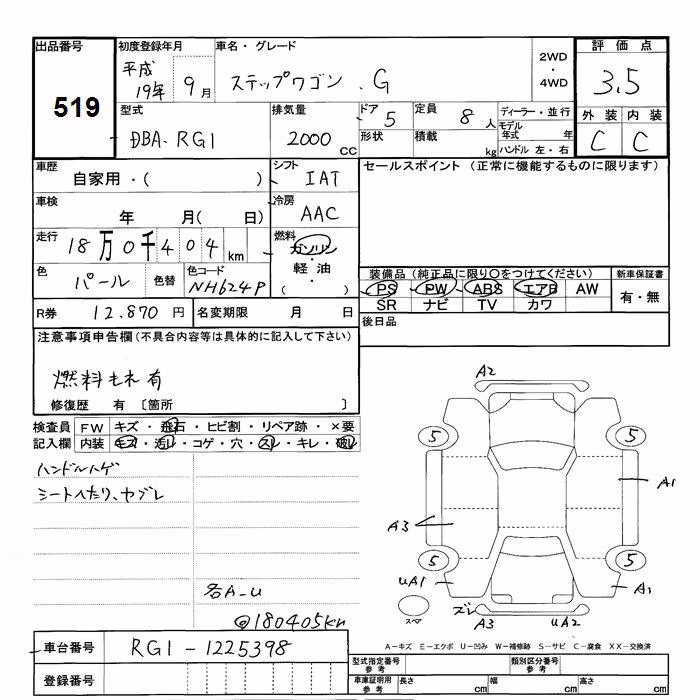 出品番号
519
初度登録年月
平成
19年 9月
車名・グレード
ステップワゴン . G
2WD
・
4WD
評価点
3.5
外装 内装
C C
型式
DBA-RG1
排気量
2000 CC
ドア
5
定員
8 人
形状
積載
kg
ディーラー・並行
モデル
年式 年
ハンドル 左・右
車歴
自家用・( )
シフト
IAT
セールスポイント (正常に機能するものに限ります)
車検
年 月( 日)
冷房
AAC
走行
18万0千404 km
燃料
ガソリン
・
軽油
・
( )
色
パール
色替
色コード
NH624P
装備品(純正品に限り○をつけてください)
PS PW ABS エアB AW
SR ナビ TV カワ
新車保証書
有・無
R券 12,870 円
名変期限 月 日
後日品
注意事項申告欄(不具合内容等は具体的に記入して下さい)
燃料もれ有
修復歴 有 〔箇所 〕
検査員
記入欄
FW キズ・飛石・ヒビ割・リペア跡・×要
内装 キズ・汚レ・コゲ・穴・スレ・キレ・破レ
ハンドルハゲ
シートへたり、ヤブレ
各A-U
@180405km
A2
5 5
A1
A3
5 5
UA1
A1
スペア
ズレ
A3
UA2
A-キズ E-エクボ U-凹み W-補修跡 S-サビ C-腐食 XX-交換済
車台番号 RG1-1225398
登録番号
型式指定番号
参考
類別区分番号
参考
車庫証明用
参考
長さ cm
幅 cm
高さ cm